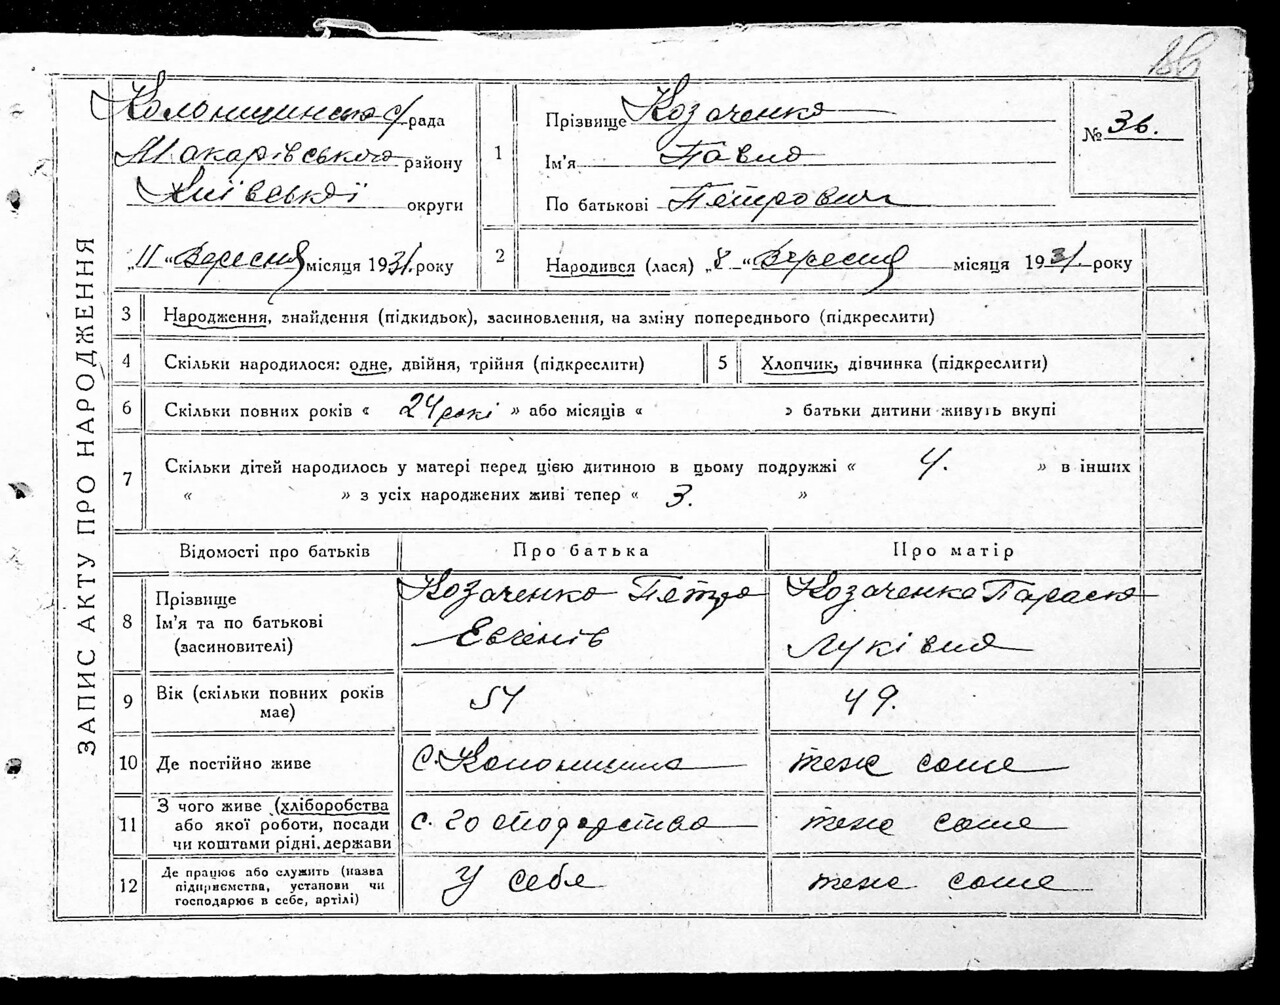 ЗАПИС АКТУ ПРО НАРОДЖЕННЯ
Колонщинська с/рада
Макарівського району
Київської округи
„11" Вересня місяця 1931 року
1
Прізвище Козаченко
Ім'я Павло
По батькові Петрович
№ 36.
2
Народився (лася) „8" Вересня місяця 1931 року
3 Народження, знайдення (підкидьок), засиновлення, на зміну попереднього (підкреслити)
4 Скільки народилося: одне, двійня, трійня (підкреслити)
5 Хлопчик, дівчинка (підкреслити)
6 Скільки повних років « 24 рокі » або місяців « » батьки дитини живуть вкупі
7 Скільки дітей народилось у матері перед цією дитиною в цьому подружжі « 4. » в інших
« » з усіх народжених живі тепер « 3. »
Відомості про батьків Про батька Про матір
8
Прізвище
Ім'я та по батькові
(засиновителі)
Козаченко Петро
Козаченко Параска
Луківна
9
Вік (скільки повних років
має)
54
49.
10 Де постійно живе
с. Колонщина
теж саме
11
З чого живе (хліборобства
або якої роботи, посади
чи коштами рідні, держави
с. господарство
теж саме
12
Де працює або служить (назва
підприємства, установи чи
господарює в себе, артілі)
У себе
теж саме